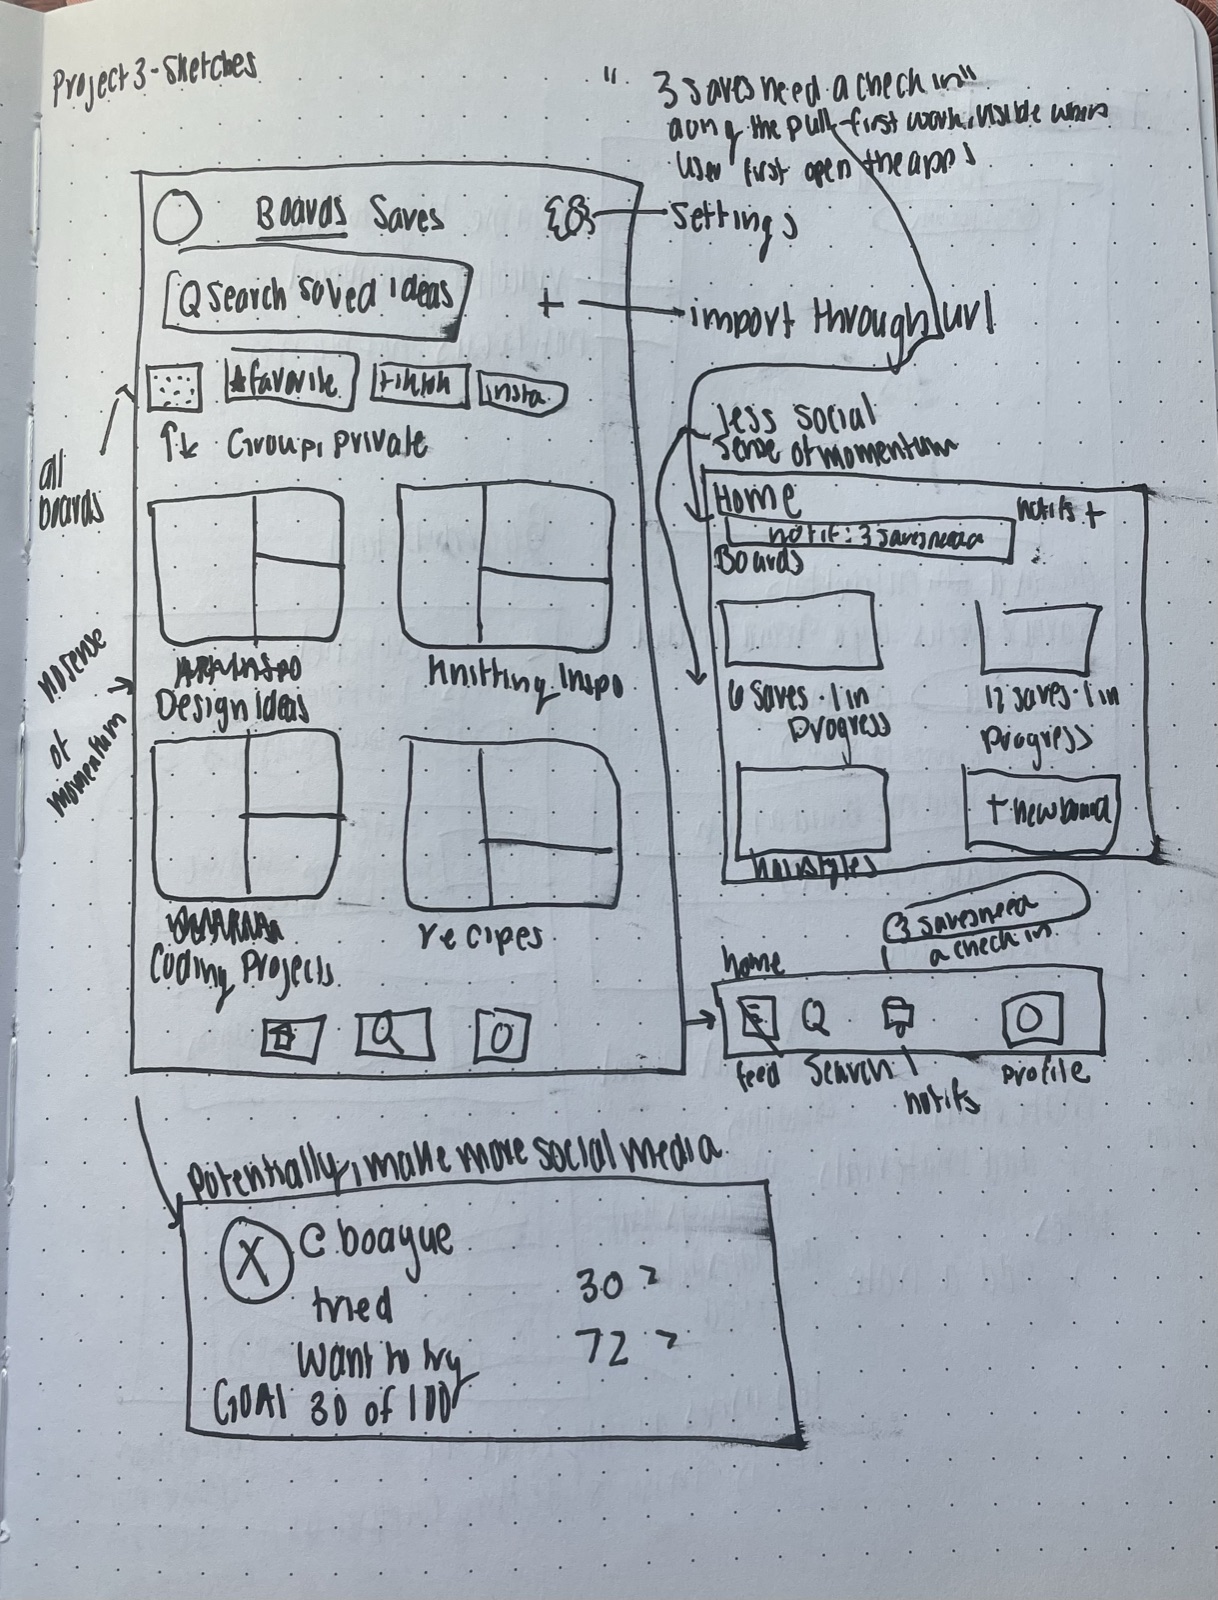 Project 3 - Sketches
" 3 saves need a check in"
the pull-first work, visible when
user first open the apps
Boards Saves
Settings
Q search saved ideas
+
import through url
favorite tiktok insta
Group, private
all
boards
less social
sense of momentum
Home
notifs +
notif: 3 saves need a
Boards
6 saves · 1 in
progress
12 saves · 1 in
progress
hairstyles
+ new board
no sense
of
momentum
Design ideas
Knitting Inspo
Coding Projects
recipes
3 saves need
a check in
home
feed search notifs profile
Potentially, make more social media
X C.boague
tried 30 >
Want to try 72 >
GOAl 30 of 100